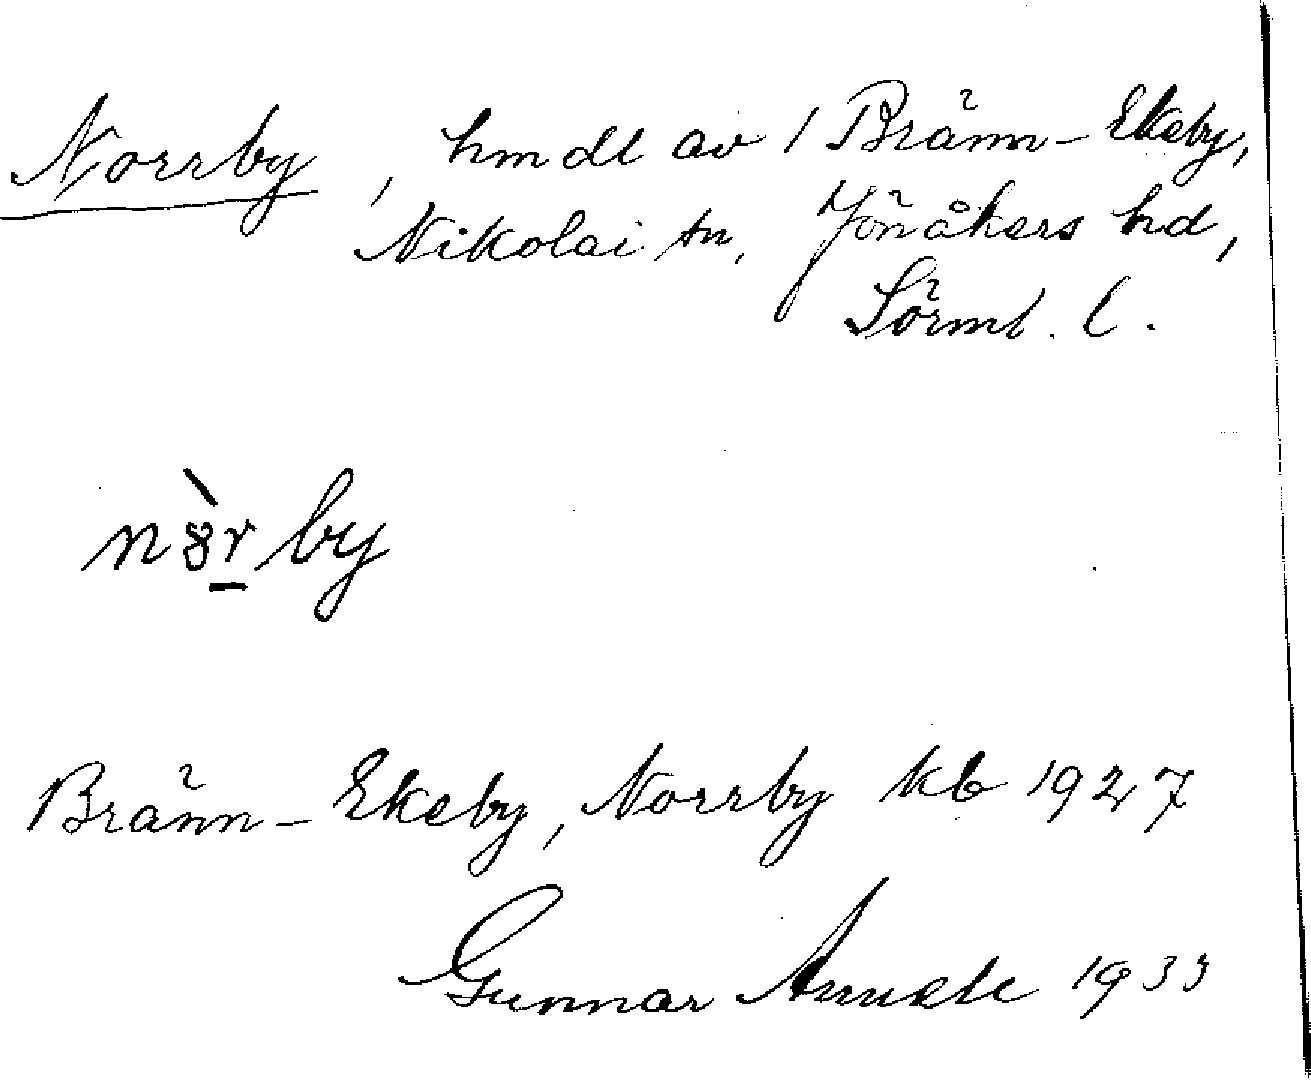 Norrby, hmdl av 1 Bränn-Ekeby,
Nikolai sn, Jönåkers hd,
Sörml. l.
Bränn-Ekeby, Norrby kb 1927
Gunnar 1933